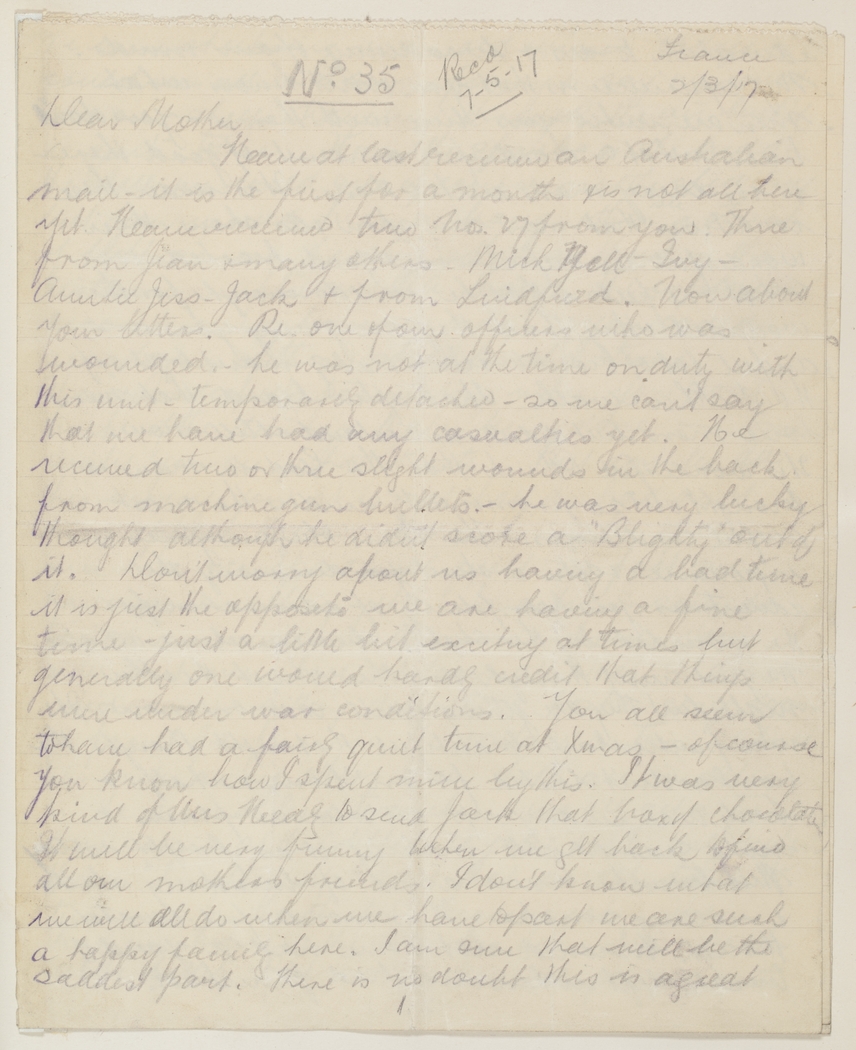 No 35
Recd
7-5-17
France
2/3/17
Dear Mother
Have at last received an Australian
mail - it is the first for a month & is not all here
yet. Have received two No. 27 from you. Three
from Jean & many others - Mick - Ivy -
Auntie Jess - Jack & from Lindfield. Now about
your letters. Re. one of our officers who was
wounded. - he was not at the time on duty with
this unit - temporarily detached - so we can't say
that we have had any casualties yet. He
received two or three slight wounds in the back
from machine gun bullets. - he was very lucky
thought although he didn't score a "Blighty" out of
it. Don't worry about us having a bad time
it is just the opposite we are having a fine
time - just a little bit exciting at times but
generally one would hardly credit that things
were under war conditions. You all seem
to have had a fairly quiet time at Xmas - of course
you know how I spent mine by this. It was very
kind of Mrs Healy to send Jack that box of chocolates
It will be very funny when we get back to find
all our mothers friends. I don't know what
we will all do when we have to part we are such
a happy family here. I am sure that will be the
saddest part. There is no doubt this is a great
1